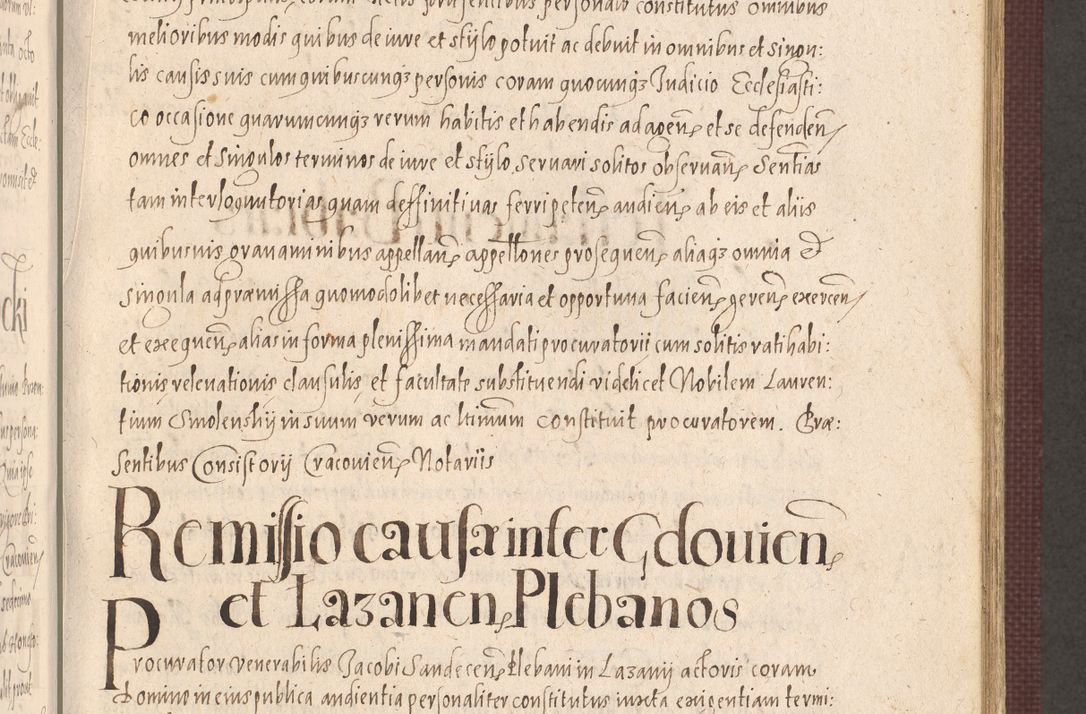 personalr constitutus omnibus
melioribus modis quibus de iure et stÿlo potuit ac debuit in omnibus et singu:
lis causis suis cum quibuscunqȝ personis coram quocunqȝ Judicio Ecclesiasti:
co occasione quarumcunqȝ rerum habitis et habendis ad agen et se defenden
omnes et singulos terminos de iure et stÿlo servari solitos observan Sentias
tam interloqutorias quam deffinitivas ferri peten audien ab eis et aliis
quibusvis gravaminibus appellan appellones prosequen aliaqȝ omnia et
singula ad præmissa quomodolibet necessaria et opportuna facien geren exercen
et exequen alias in forma plenissima mandati procuratorii cum solitis ratihabi:
tionis relevationis clausulis et facultate substituendi videlicet Nobilem Lauren:
tium Smolenskÿ in suum verum ac ltimum constituit procuratorem. Præ:
sentibus Consistorÿ Cracovien Notariis
Remissio causæ inter Gdovien
et Lazanen Plebanos
Procurator venerabilis Jacobi Sandecen Plebani in Lazanÿ actoris coram
Domino in eius publica audientia personaliter constitutus iuxta exigentiam termi: